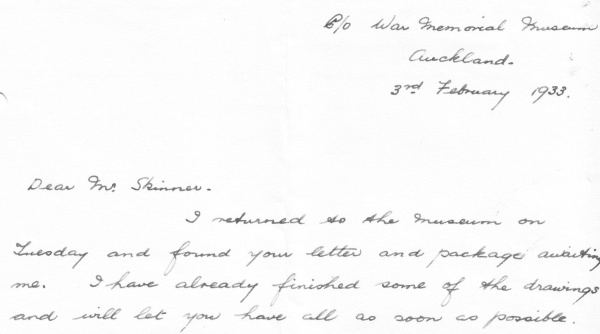 C/o War Memorial Museum
Auckland.
3rd February 1933.
Dear Mr. Skinner.
I returned to the Museum on
Tuesday and found your letter and package awaiting
me. I have already finished some of the drawings
and will let you have all as soon as possible.